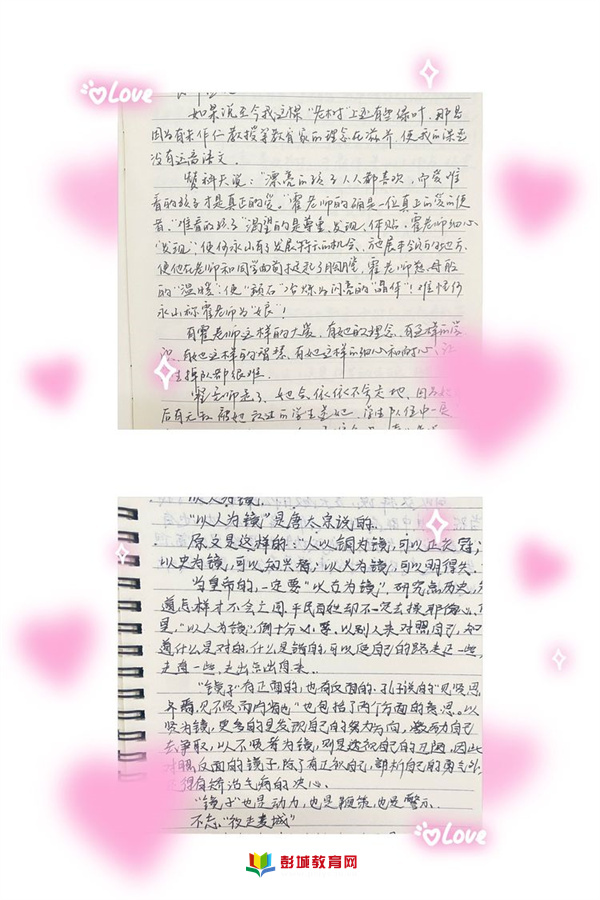 Love
如果说至今我这棵“老树”上还有些绿叶，那是
因为有朱作仁教授等教育家的理念在滋养，使我的课还
没有远离语文。
赞科夫说：“漂亮的孩子人人都喜欢，而爱难
看的孩子才是真正的爱。”霍老师的确是一位真正的爱的使
者。“难看的孩子”渴望的是尊重、发现、体贴，霍老师细心
“发现”，使何永山有了发展特长的机会、施展手领的地方，
使他在老师和同学面前挺起了胸膛，霍老师慈母般
的“温暖”，使“顽石”冶炼为闪亮的“晶体”！难怪何
永山称霍老师为“娘”！
有霍老师这样的大爱，有她的理念，有这样的学
识，有她这样的智慧，有她这样的细心和耐心，让
生掉队都很难。
霍老师走了，她会依依不舍
后有无数被她
“以人为镜”是唐太宗说的。
原文是这样的：“人以铜为镜，可以正衣冠；
以史为镜，可以知兴替；以人为镜，可以明得失。
当皇帝的，一定要“以古为镜”，研究点历史，
道怎样才不会亡国，平民百姓却不一定去操那份心。
“以人为镜”，倒十分必要，以别人来对照自己，知
道什么是对的，什么是错的，可以使自己的路走近一些，
走直一些，
“镜子”有正面的，也有反面的。孔子说的“见贤思
齐焉，见不贤而内省也”也包括了两个方面的意思。以
贤为镜，更多的是发现自己的努力方向，激励自己
去争取，以不贤者为镜，则是透视自己的
对照反面的镜子，除了有正视自己，解剖自己的勇气外，
还得有矫治毛病的决心。
“镜子”也是动力，也是鞭策，也是警示。
不忘“夜走麦城”
彭城教育网
Love